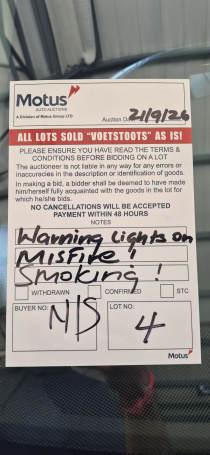 Motus
AUTO AUCTIONS
A Division of Motus Group LTD
Auction Date 21/9/26
ALL LOTS SOLD "VOETSTOOTS" AS IS!
PLEASE ENSURE YOU HAVE READ THE TERMS &
CONDITIONS BEFORE BIDDING ON A LOT
The auctioneer is not liable in any way for any errors or
inaccuracies in the description or identification of goods.
In making a bid, a bidder shall be deemed to have made
him/herself fully acquainted with the goods in the lot for
which he/she bids.
NO CANCELLATIONS WILL BE ACCEPTED
PAYMENT WITHIN 48 HOURS
NOTES
Warning Lights on
Misfire!
Smoking!
WITHDRAWN CONFIRMED STC
BUYER NO: N/S LOT NO: 4
Motus